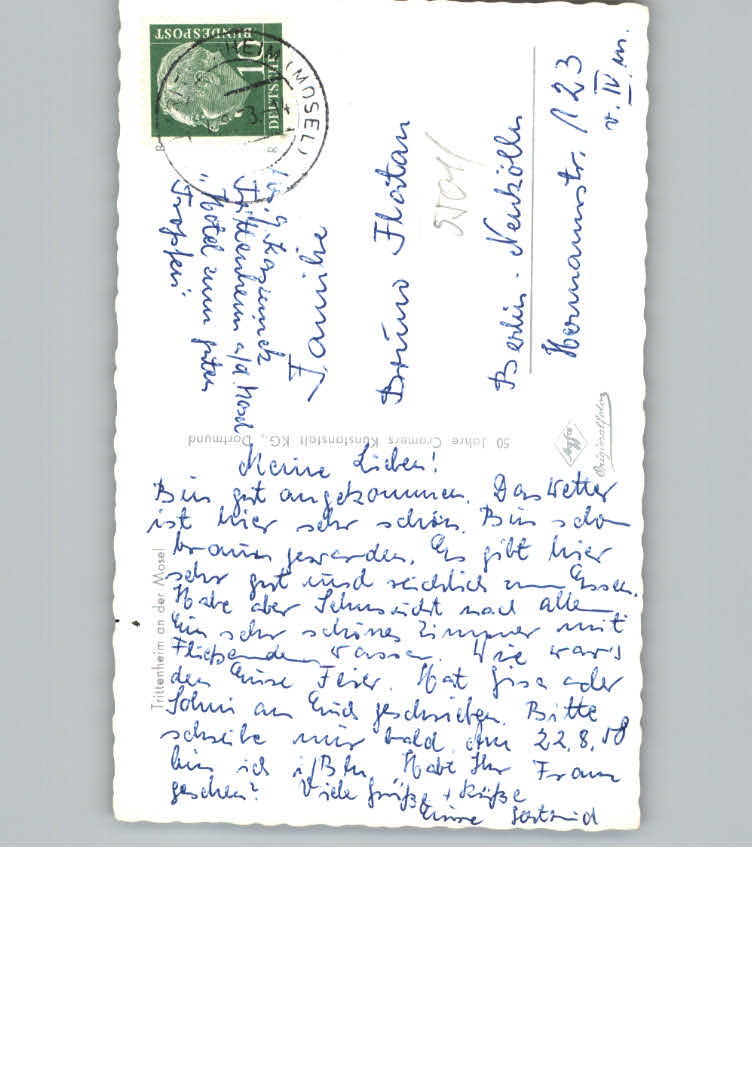 DEUTSCHE
BUNDESPOST
10
HEIM (MOSEL)
G. 
Trittenheim a/d. Mosel
"Hotel zum guten
Tropfen"
Familie
Bruno Flatau
Berlin-Neukölln
Hermannstr. 123
v. IV m.
50 Jahre Cramers Kunstanstalt KG., Dortmund
Agfa
Originalfoto
Trittenheim an der Mosel
Meine Lieben!
Bin gut angekommen. Das Wetter
ist hier sehr schön. Bin schon
braun geworden. Es gibt hier
sehr gut und reichlich zum Essen.
Habe aber Sehnsucht nach allen
Ein sehr schönes Zimmer mit
Fließendem Wasser. Wie war's
den Eure Feier. Hat oder
an Euch geschrieben. Bitte
schreibe mir bald. Am 22.8.58
bin ich i/Bln. Habt Ihr Frau
gesehen? Viele Grüße + Küße
Eure